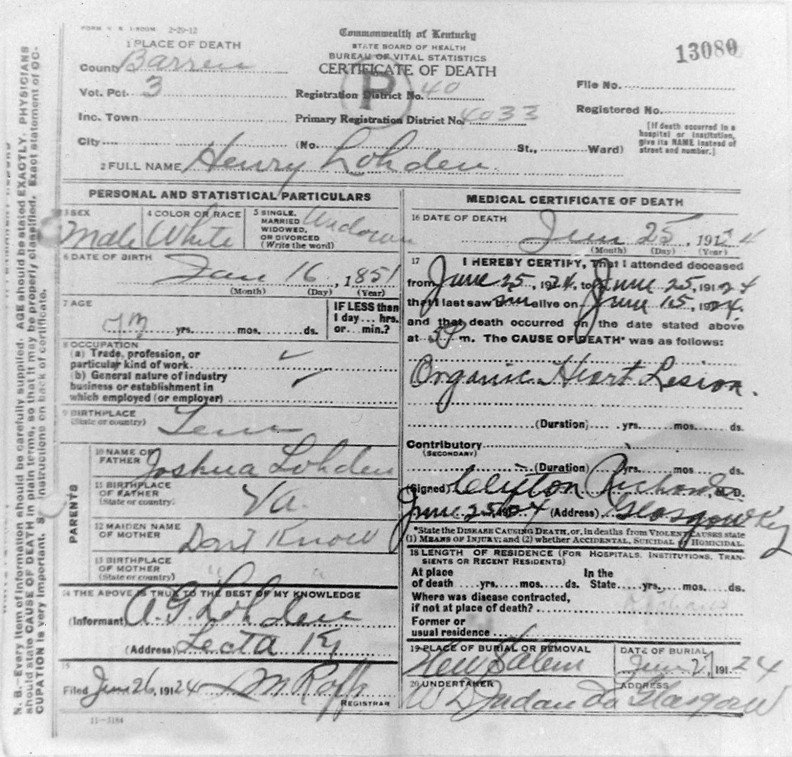 2-29-12
Commonwealth of Kentucky
STATE BOARD OF HEALTH
BUREAU OF VITAL STATISTICS
CERTIFICATE OF DEATH
13080
1 PLACE OF DEATH
County Barren
Vot. Pct. 3
Inc. Town
City
P
Registration District No. 40
Primary Registration District No. 4033
(No. St., Ward)
File No.
Registered No.
[If death occurred in a
hospital or institution,
give its NAME instead of
street and number.]
2 FULL NAME Henry Lohden
PERSONAL AND STATISTICAL PARTICULARS
3 SEX
Male
4 COLOR OR RACE
White
5 SINGLE,
MARRIED
WIDOWED,
OR DIVORCED
(Write the word)
6 DATE OF BIRTH
Jan 16, 1851
(Month) (Day) (Year)
7 AGE
yrs. mos. ds.
IF LESS than
1 day... hrs.
or... min.?
8 OCCUPATION
(a) Trade, profession, or
particular kind of work
(b) General nature of industry
business or establishment in
which employed (or employer)
9 BIRTHPLACE
(State or country)
Tenn
PARENTS
10 NAME OF
FATHER
Joshua Lohden
11 BIRTHPLACE
OF FATHER
(State or country)
Va.
12 MAIDEN NAME
OF MOTHER
Dont Know
13 BIRTHPLACE
OF MOTHER
(State or country)
14 THE ABOVE IS TRUE TO THE BEST OF MY KNOWLEDGE
(Informant) A.G. Lohden
(Address) Lecta Ky
15
Filed June 26, 19124
REGISTRAR
11-5184
MEDICAL CERTIFICATE OF DEATH
16 DATE OF DEATH
June 25, 191
(Month) (Day) (Year)
17 I HEREBY CERTIFY, That I attended deceased
from June 25, 1924, to June 25, 19124
that I last saw him alive on June 15, 1924,
and that death occurred on the date stated above
at m. The CAUSE OF DEATH* was as follows:
Organic Heart Lesion.
(Duration) yrs. mos. ds.
Contributory
(SECONDARY)
(Duration) yrs. mos. ds.
(Signed) M.D.
June 25 (Address) Glasgow Ky
*State the DISEASE CAUSING DEATH, or, in deaths from VIOLENT CAUSES state
(1) MEANS OF INJURY; and (2) whether ACCIDENTAL, SUICIDAL or HOMICIDAL.
18 LENGTH OF RESIDENCE (FOR HOSPITALS, INSTITUTIONS, TRAN-
SIENTS OR RECENT RESIDENTS)
At place
of death yrs. mos. ds.
In the
State yrs. mos. ds.
Where was disease contracted,
if not at place of death?
Former or
usual residence
19 PLACE OF BURIAL OR REMOVAL
New Salem
DATE OF BURIAL
June 27, 19124
20 UNDERTAKER
ADDRESS
Glasgow
N. B.—Every item of information should be carefully supplied. AGE should be stated EXACTLY. PHYSICIANS
should state CAUSE OF DEATH in plain terms, so that it may be properly classified. Exact statement of OC-
CUPATION is very important. See instructions on back of certificate.